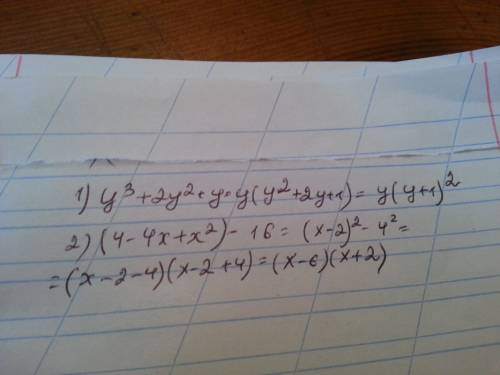 1) y³+2y²+y=y(y²+2y+1)=y(y+1)²
2) (4-4x+x²)-16=(x-2)²-4²=
=(x-2-4)(x-2+4)=(x-6)(x+2)